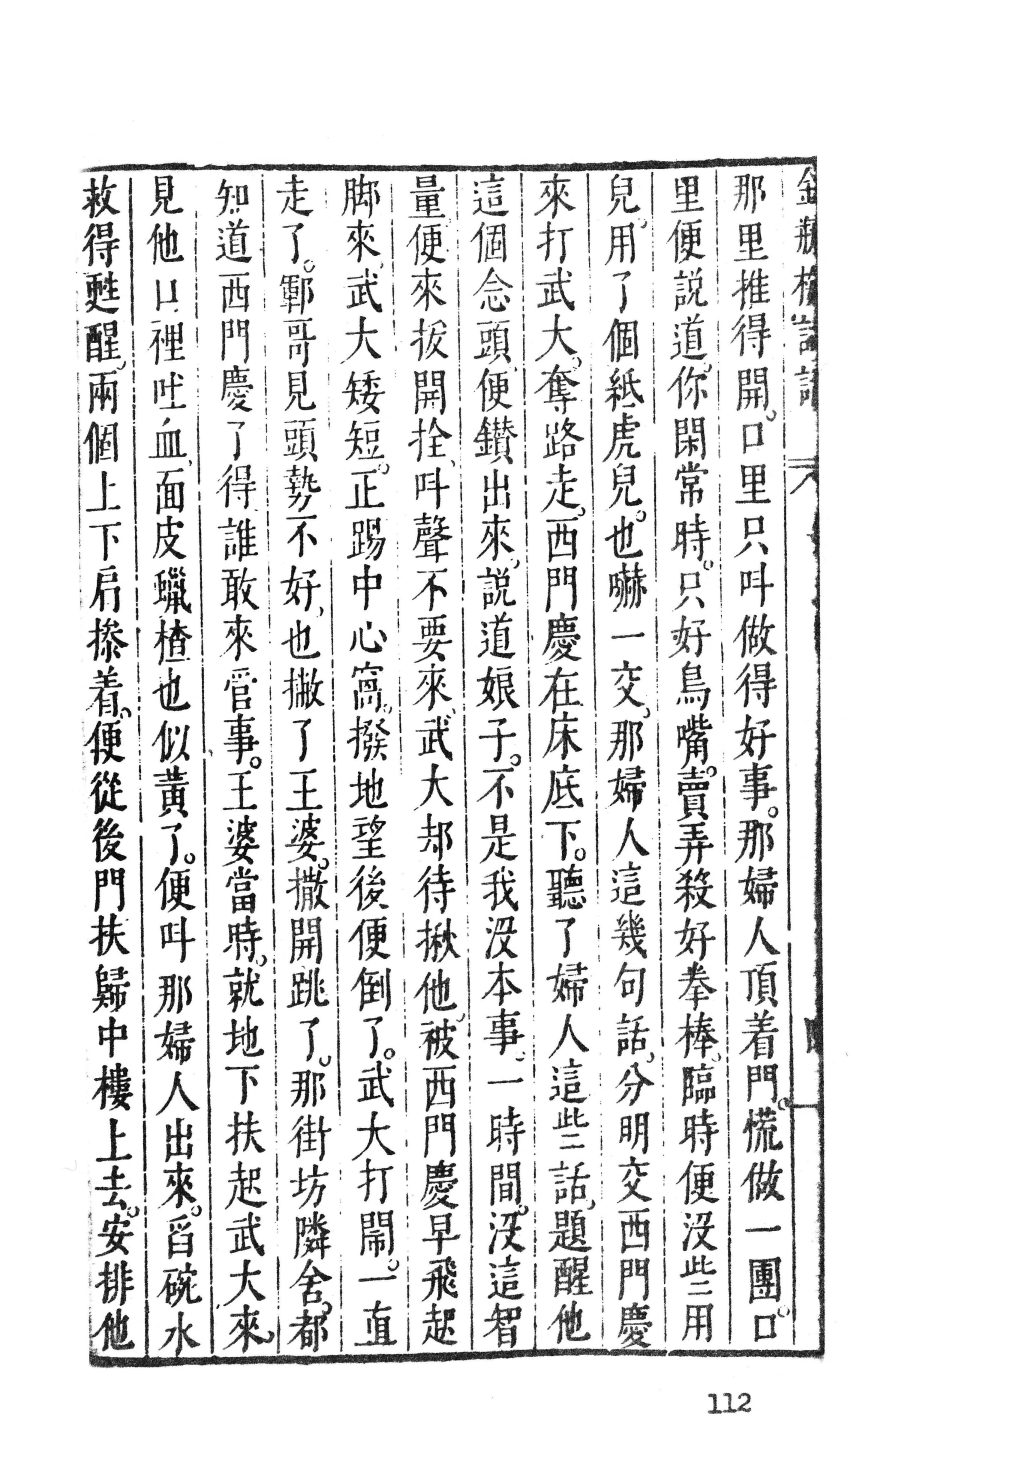 金瓶梅詞話
那里推得開。口里只呌做得好事。那婦人頂着門。慌做一團。口
里便説道。你閑常時。只好鳥嘴。賣弄殺好拳棒。臨時便没些用
兒。用了個紙虎兒。也嚇一交。那婦人這幾句話。分明交西門慶
來打武大。奪路走。西門慶在床底下。聽了婦人這些話、題醒他
這個念頭、便鑚出來。説道娘子。不是我没本事、一時間。没這智
量、便來拔開拴、呌聲不要來、武大却待揪他。被西門慶早飛起
脚來、武大矮短。正踢中心窩。撥地望後便倒了。武大打鬧。一直
走了。鄆哥見頭勢不好、也撇了王婆。撒開跳了。那街坊隣舍。都
知道西門慶了得、誰敢來官事。王婆當時。就地下扶起武大來。
見他口裡吐血、面皮蠟楂也似黄了。便呌那婦人出來。舀碗水
救得甦醒。兩個上下肩摻着。便從後門扶歸中樓上去。安排他
112